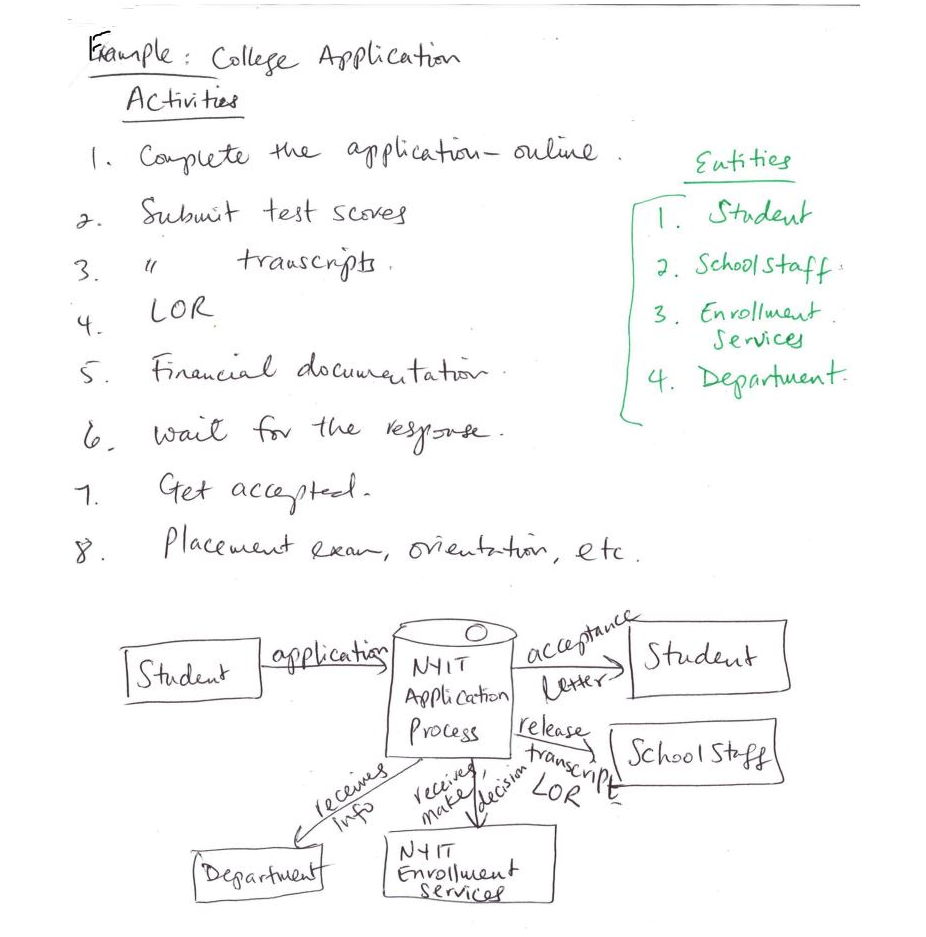 Example: College Application
Activities
1. Complete the application - online.
2. Submit test scores
3. " transcripts.
4. LOR
5. Financial documentation.
6. wait for the response.
7. Get accepted.
8. Placement exam, orientation, etc.
Entities
1. Student
2. School Staff.
3. Enrollment
Services
4. Department.
Student
application
NYIT
Application
Process
acceptance
letter
Student
release
transcript
LOR
School Staff
receives
info
Department
receives,
make
decision
NYIT
Enrollment
Services